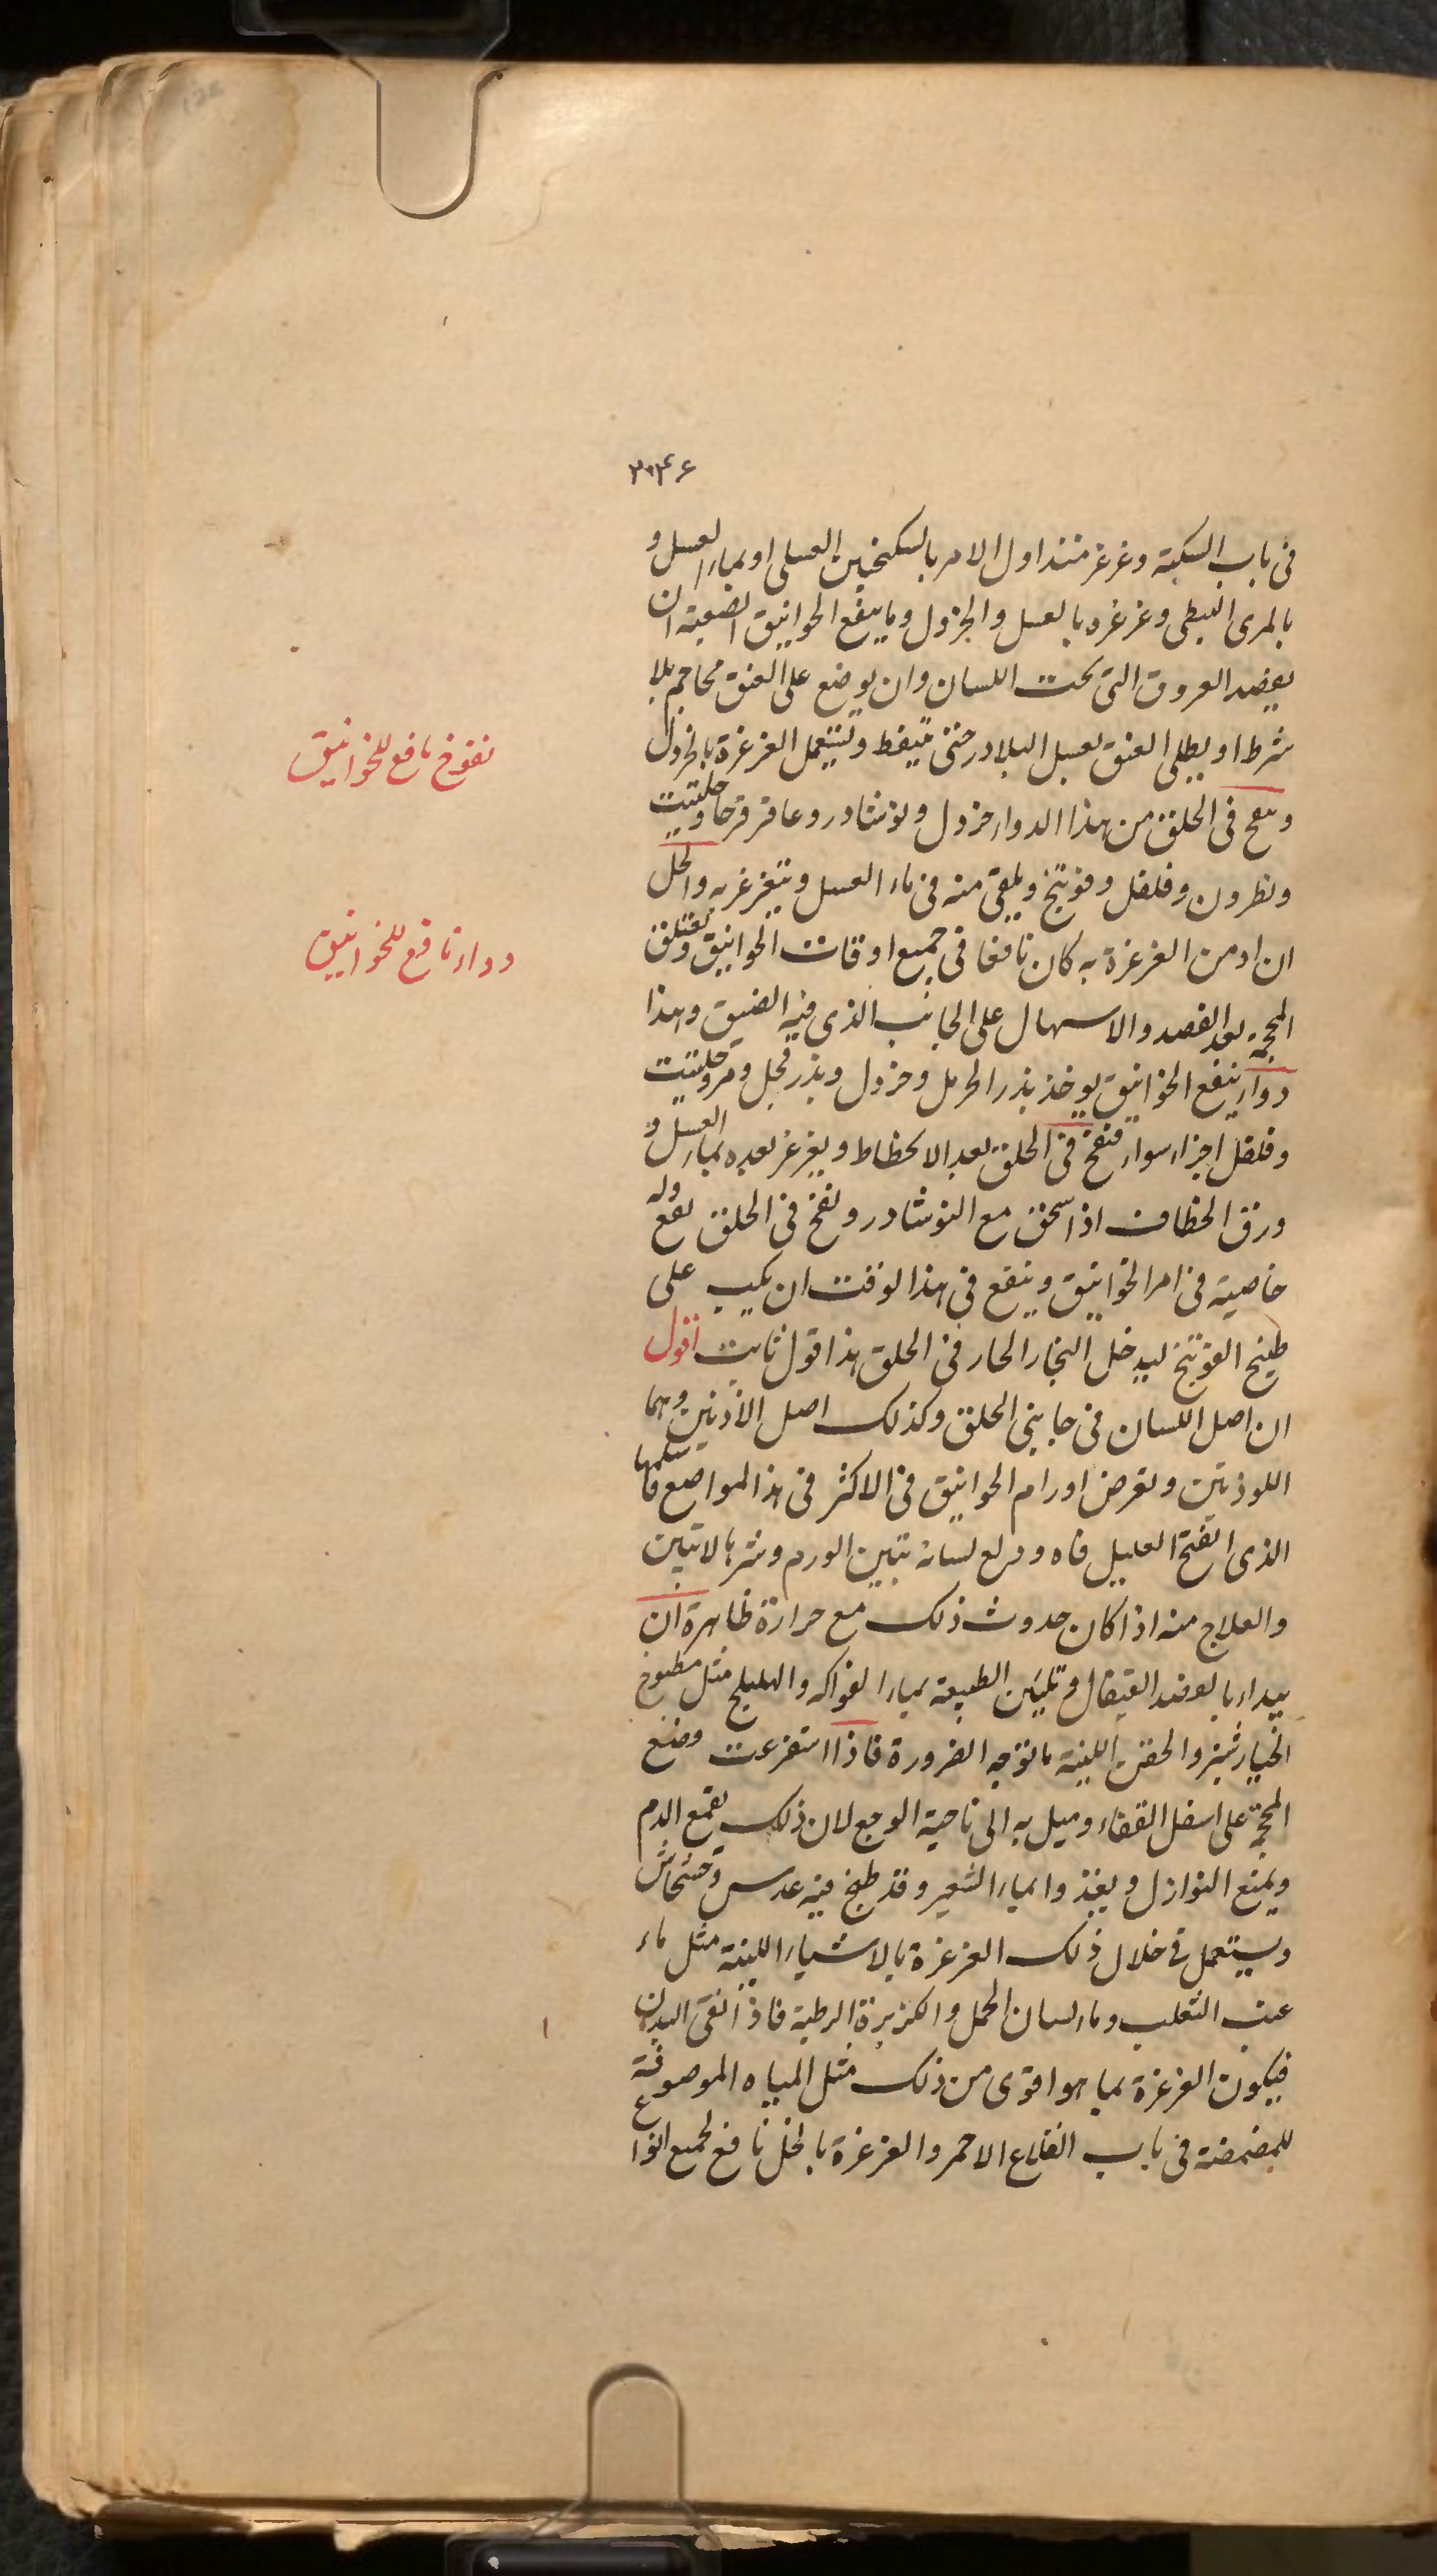 ٢٠٤٦
فى باب السكتة وغرغر منذ اول الامر بالسكنجبين العسلى او بماء العسل و
بالمرى النبطى وغرغره بالعسل والخردل ومما ينفع الخوانيق الصعبة ان
يفصد العروق التى تحت اللسان وان يوضع على العنق محاجم بلا
شرط او يطلى العنق بعسل البلادر حتى يتنفط ويستعمل الغرغرة بالخردل
وينفخ فى الحلق من هذا الدواء خردل ونوشادر وعاقرقرحا وحلتيت
ونطرون وفلفل وفوتنج ويلقى منه فى ماء العسل ويتغرغر به والخل
ان ادمن الغرغرة به كان نافعا فى جميع اوقات الخوانيق وتعلق
المحجمة بعد الفصد والاسهال على الجانب الذى فيه الضيق وهذا
دواء ينفع الخوانيق يوخذ بذر الحرمل وخردل وبذر فجل ومر وحلتيت
وفلفل اجزاء سواء فنفخ فى الحلق بعد الانحطاط ويغرغر بعده بماء العسل و
ورق الخطاف اذا سحق مع النوشادر ونفخ فى الحلق نفع وله
خاصية فى امر الخوانيق وينفع فى هذا لوقت ان يكب على
طبيخ الفوتنج ليدخل البخار الحار فى الحلق هذا قول ثابت اقول
ان اصل اللسان فى جانبى الحلق وكذلك اصل الاذنين وهما
اللوذتين وتعرض اورام الخوانيق فى الاكثر فى هذا لمواضع فاسلمها
الذى افتح العليل فاه ودلع لسانه تبين الورم وشرها لا تبين
والعلاج منه اذا كان حدوث ذلك مع حرارة ظاهرة ان
يبداء بالفصد القيفال وتليين الطبيعة بماء الفواكه والهليلج مثل مطبوخ
الخيار شنبر والحقن اللينة ما توجبه الضرورة فاذا استفرغت وضع
المحجمة على اسفل القفاء وميل به الى ناحية الوجع لان ذلك يقمع الدم
ويمنع النوازل ويغذوا بماء الشعير وقد طبخ فيه عدس وخشخاش
ويستعمل فى خلال ذلك الغرغرة بالاشياء اللينة مثل ماء
عنب الثعلب وماء لسان الحمل والكزبرة الرطبة فاذا نقى البدن
فيكون الغرغرة بما هو اقوى من ذلك مثل المياه الموصوفة
للمضمضة فى باب القلاع الاحمر والغرغرة بالخل نافع لجميع انواع
نفوخ نافع للخوانيق
دواء نافع للخوانيق